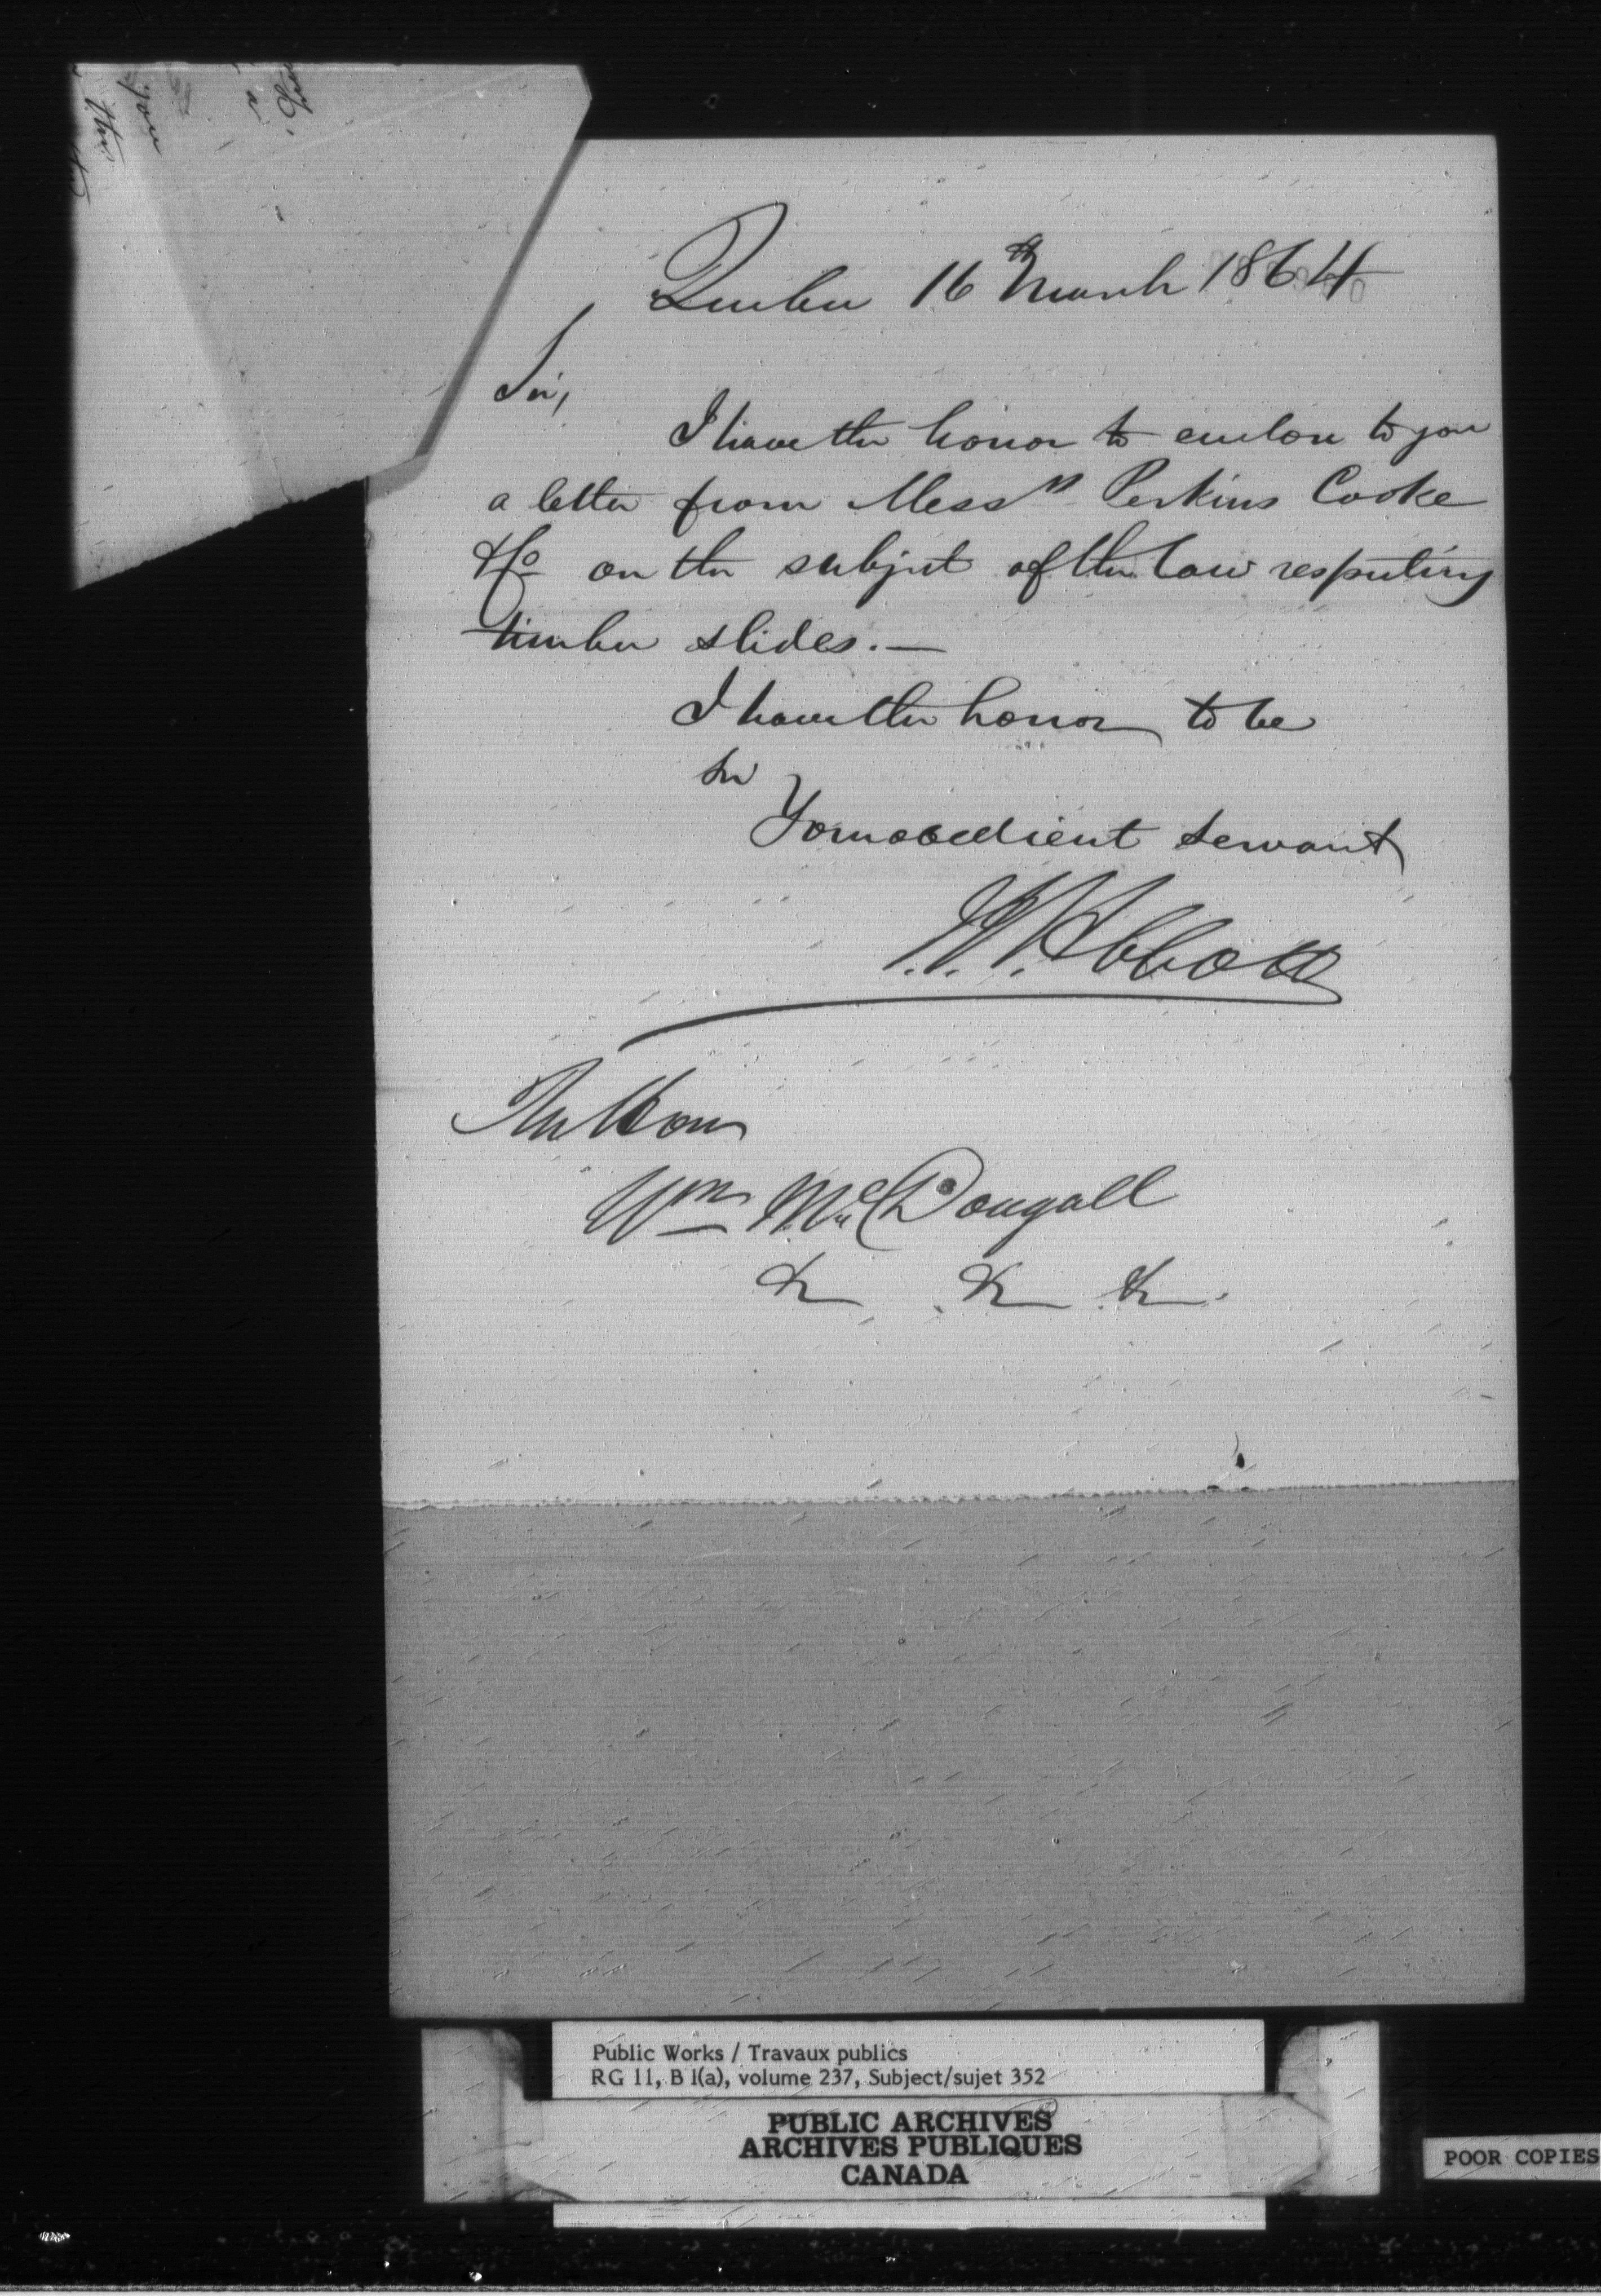 Quebec 16 March 1864
Sir,
I have the honor to enclose to you
a letter from Messrs Perkins Cooke
& Co on the subject of the law respecting
timber slides.—
I have the honor to be
Sir
Your obedient servant
J.J.C. Abbott
The Hon
Wm McDougall
&c &c &c.
you
this
a
Public Works / Travaux publics
RG 11, B 1(a), volume 237, Subject/sujet 352
PUBLIC ARCHIVES
ARCHIVES PUBLIQUES
CANADA
POOR COPIES